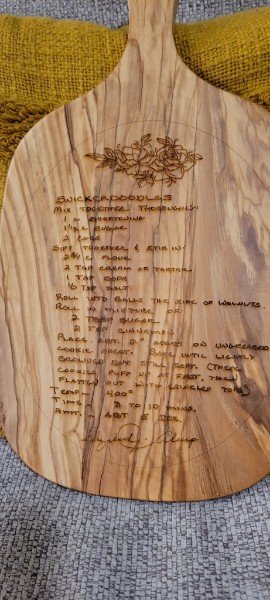 SNICKERDOODLES
MIX TOGETHER THOROUGHLY:
1 C SHORTENING
1 1/2 C SUGAR
2 EGGS
SIFT TOGETHER & STIR IN:
2 3/4 C FLOUR
2 TSP CREAM OF TARTAR
1 TSP SODA
TSP SALT
ROLL INTO BALLS THE SIZE OF WALNUTS.
ROLL IN MIXTURE OF:
2 SUGAR
2 TSP CINNAMON
PLACE ABT. 2" APART ON UNGREASED
COOKIE SHEET. BAKE UNTIL LIGHTLY
BROWNED BUT STILL SOFT. (THESE
COOKIES PUFF UP AT FIRST, THEN
FLATTEN OUT WITH CRINKLED TOPS)
TEMP: 400°
TIME: 8 TO 10 MINS.
AMT: ABT 5 DOZ.